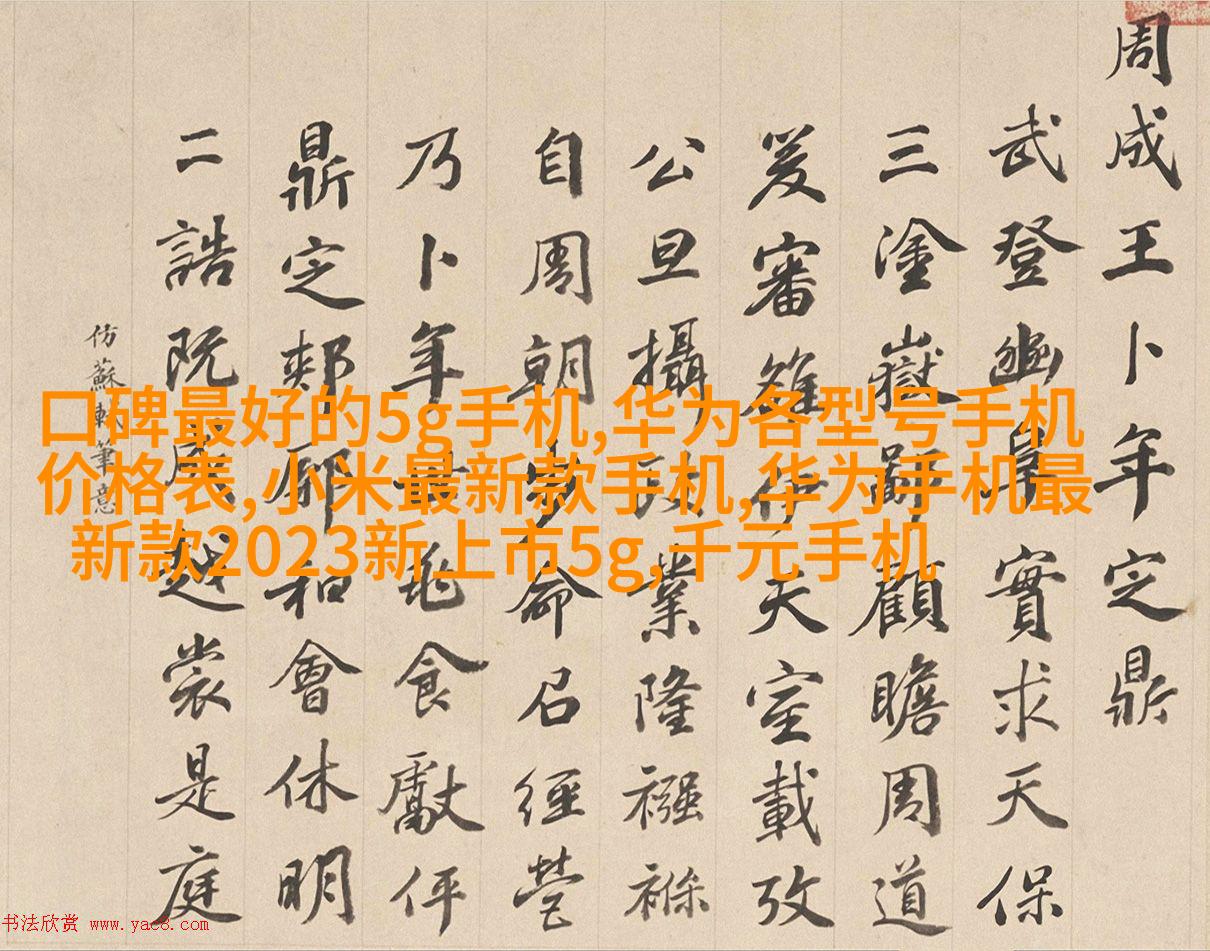 周成王卜年定鼎
武登幽阜實求天保
三塗嶽鄙顧瞻周道
爰審雒伊天室載攷
公旦攝政業隆襁褓
自周朝步命召經營
乃卜年世龜食獻伻
鼎定郟鄏和會休明
二誥既成越裳是庭
仿蘇軾筆意
口碑最好的5g手机,华为各型号手机
价格表,小米最新款手机,华为手机最
新款2023新上市5g,千元手机
书法欣赏 www.yac8.com